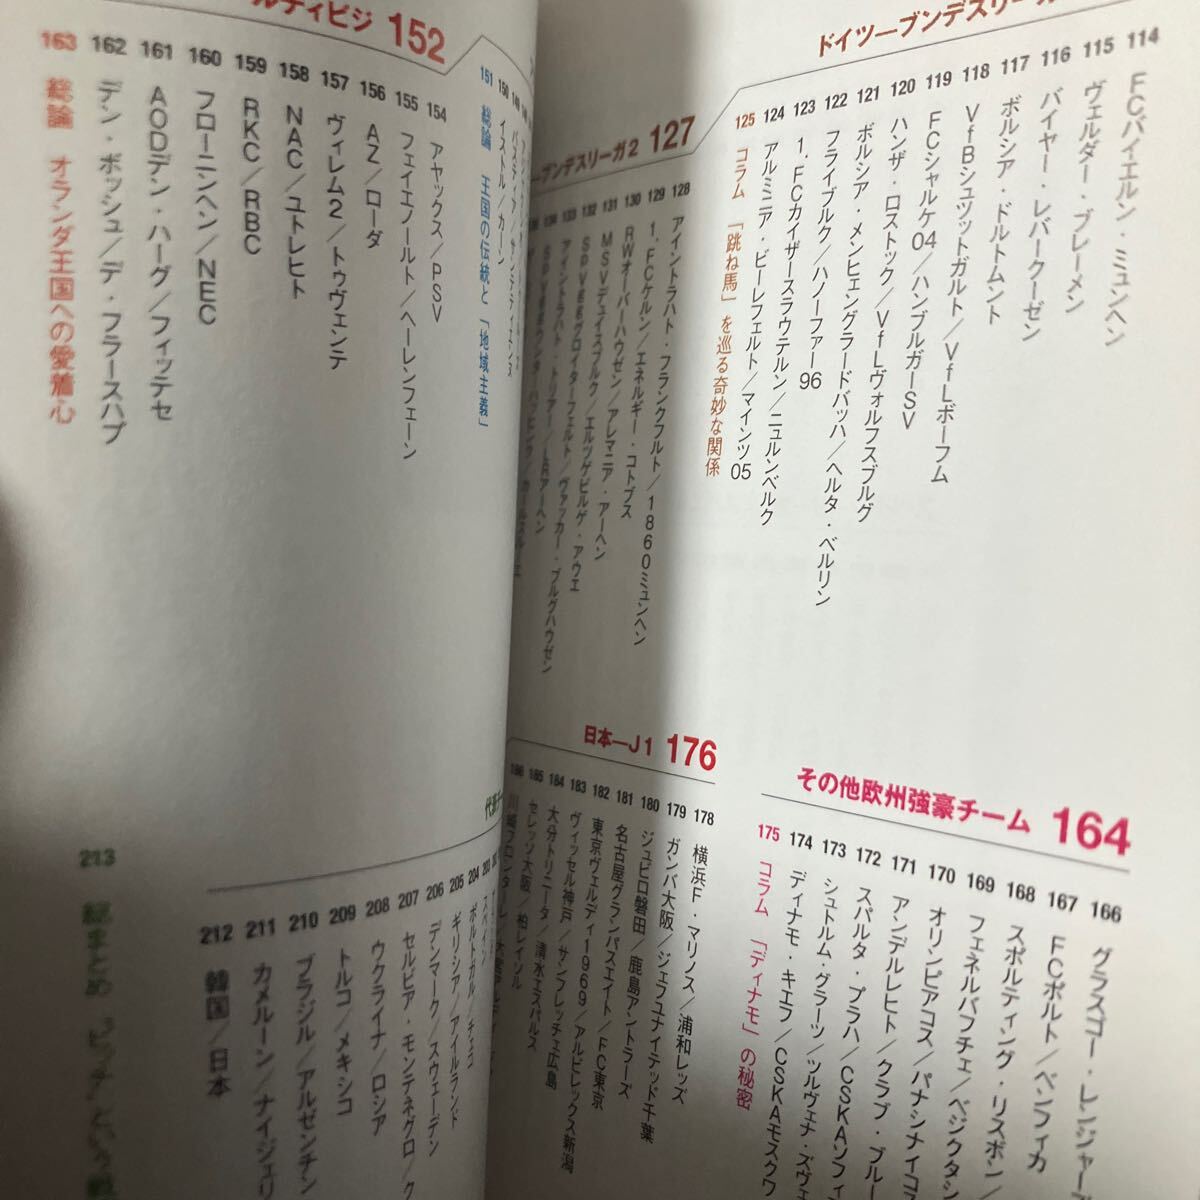 ドイツ―ブンデスリーガ
114 FCバイエルン・ミュンヘン
115 ヴェルダー・ブレーメン
116 バイヤー・レバークーゼン
117 ボルシア・ドルトムント
118 VfBシュツットガルト/VfLボーフム
119 FCシャルケ04/ハンブルガーSV
120 ハンザ・ロストック/VfLヴォルフスブルグ
121 ボルシア・メンヒェングラードバッハ/ヘルタ・ベルリン
122 フライブルク/ハノーファー96
123 1.FCカイザースラウテルン/ニュルンベルク
124 アルミニア・ビーレフェルト/マインツ05
125 コラム 「跳ね馬」を巡る奇妙な関係
ブンデスリーガ2 127
128 アイントラハト・フランクフルト/1860ミュンヘン
129 1.FCケルン/エネルギー・コトブス
130 RWオーバーハウゼン/アレマニア・アーヘン
131 MSVデュイスブルク/エルツゲビルゲ・アウエ
132 SPVggグロイターフェルト/ヴァッカー・ブルグハウゼン
133 アイントラハト・トリアー/LRアーヘン
134
151 総論 王国の伝統と「地域主義」
150 イストル/カーン
152
154 アヤックス/PSV
155 フェイエノールト/ヘーレンフェーン
156 AZ/ローダ
157 ヴィレム2/トゥヴェンテ
158 NAC/ユトレヒト
159 RKC/RBC
160 フローニンヘン/NEC
161 AODデン・ハーグ/フィッテセ
162 デン・ボッシュ/デ・フラースハプ
163 総論 オランダ王国への愛着心
その他欧州強豪チーム 164
166 グラスゴー・レンジャー
167 FCポルト/ベンフィカ
168 スポルティング・リスボン/
169 フェネルバフチェ/ベジクタシ
170 オリンピアコス/パナシナイコ
171 アンデルレヒト/クラブ・ブルー
172 スパルタ・プラハ/CSKAソフィ
173 シュトルム・グラーツ/ツルヴェナ・ズヴェ
174 ディナモ・キエフ/CSKAモスクワ
175 コラム 「ディナモ」の秘密
日本―J1 176
178 横浜F・マリノス/浦和レッズ
179 ガンバ大阪/ジェフユナイテッド千葉
180 ジュビロ磐田/鹿島アントラーズ
181 名古屋グランパスエイト/FC東京
182 東京ヴェルディ1969/アルビレックス新潟
183 ヴィッセル神戸/サンフレッチェ広島
184 大分トリニータ/清水エスパルス
185 セレッソ大阪/柏レイソル
186 川崎フロンターレ/大宮アルディ
204 ポルトガル/チェコ
205 ギリシア/アイルランド
206 デンマーク/スウェーデン
207 セルビア・モンテネグロ/ク
208 ウクライナ/ロシア
209 トルコ/メキシコ
210 ブラジル/アルゼンチン
211 カメルーン/ナイジェリ
212 韓国/日本
213 総まとめ